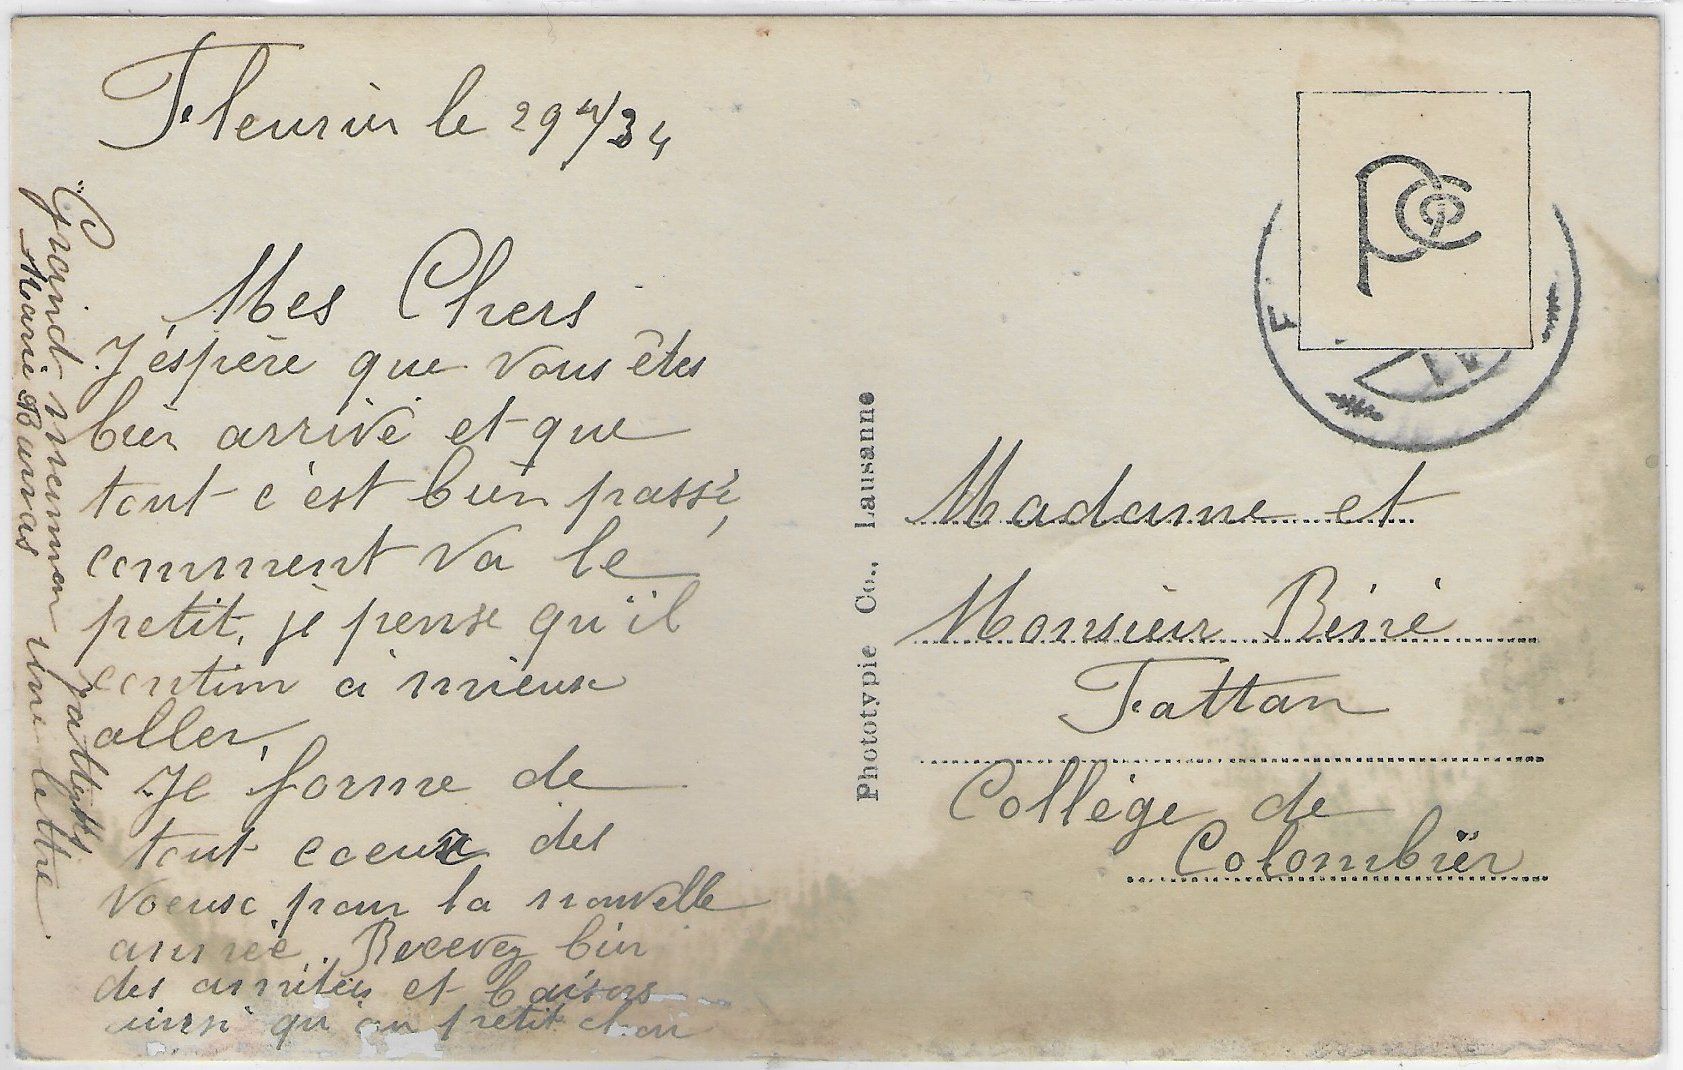 Fleurier le 29 4/34
Mes Chers
J'éspère que vous êtes
bien arrivé et que
tout c'est bien passé,
comment va le
petit, je pense qu'il
contin à mieux
aller.
Je forme de
tout coeur des
voeux pour la nouvelle
année. Recevez bien
des amitiés et baisers
ainsi qu'au petit chou
Grand
une lettre
Marie
Phototypie Co., Lausanne
Madame et
Monsieur Réné
Fattan
Collège de
Colombier